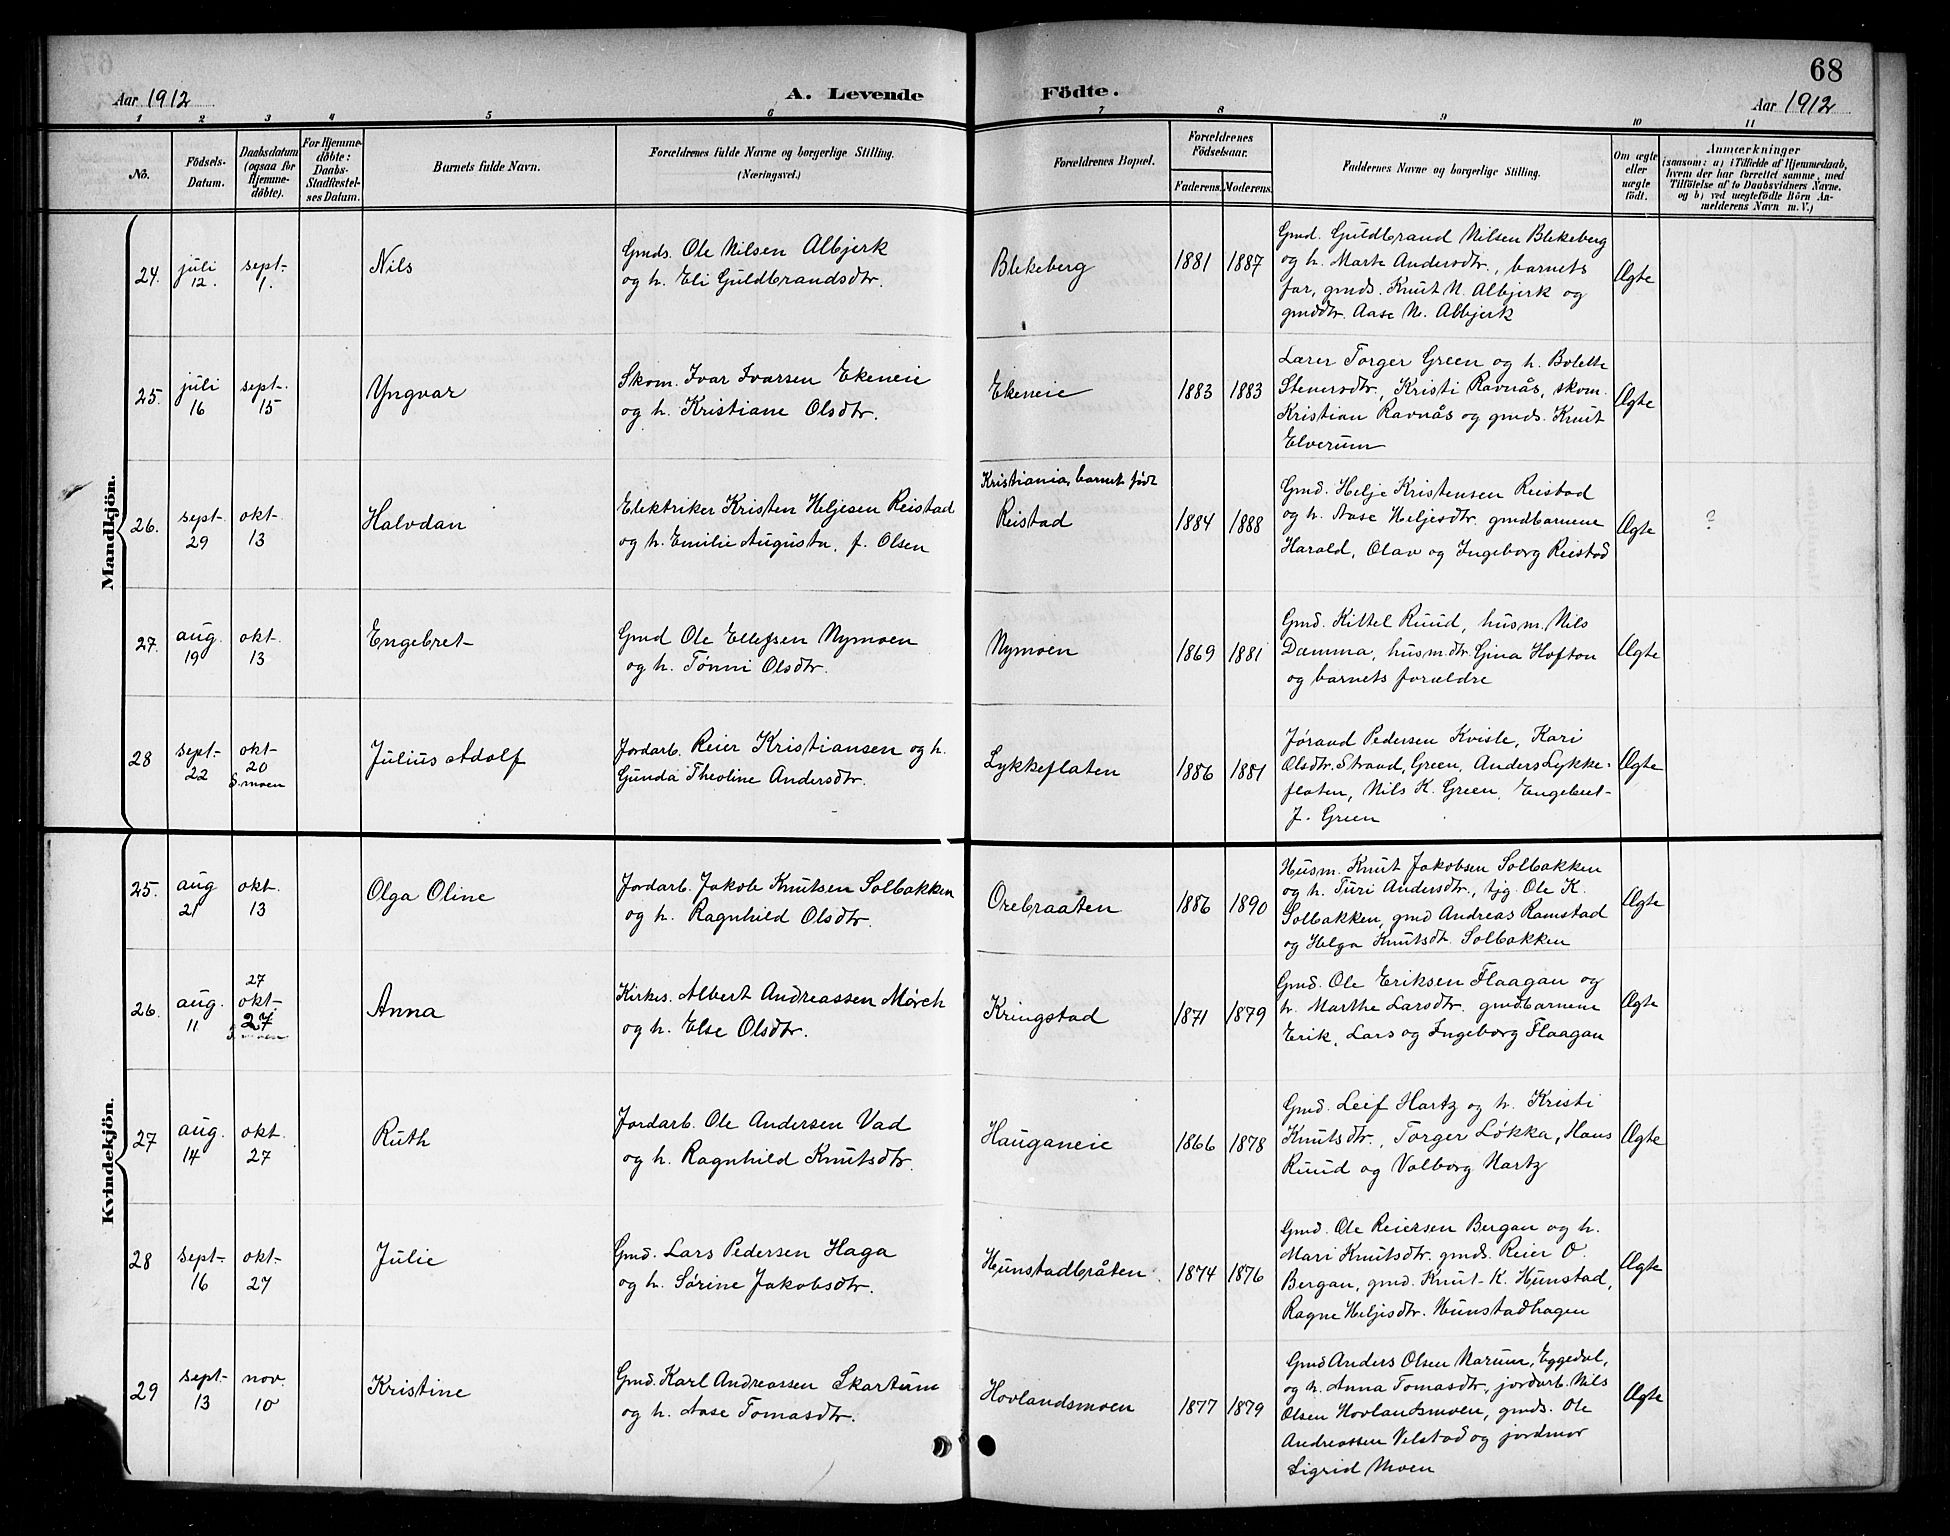 68
Aar 1912
A. Levende
Födte.
Aar 1912
1 2 3 4 5 6 7 8 9 10 11
No.
Födsels-
Datum.
Daabsdatum
(ogsaa for
Hjemme-
döbte).
For Hjemme-
döbte:
Daabs-
Stadfæstel-
ses Datum.
Barnets fulde Navn.
Forældrenes fulde Navne og borgerlige Stilling.
(Næringsvei.)
Forældrenes Bopæl.
Forældrenes
Födselsaar.
Faderens. Moderens.
Faddernes Navne og borgerlige Stilling.
Om ægte
eller
uægte
født.
Anmærkninger
(saasom: a) i Tilfælde af Hjemmedaab,
hvem der har forrettet samme, med
Tilföielse af to Daabsvidners Navne,
og b) ved uægtefödte Börn An-
melderens Navn m. V.)
Mandkjön.
24. juli 12. sept. 1.
Nils
Gmds. Ole Nilsen Albjerk
og h. Eli Guldbrandsdtr.
Blekeberg
1881 1887
Gmd. Guldbrand Nilsen Blekeberg
og h. Marte Andersdtr., barnets
far, gmds. Knut N. Albjerk og
gmddtr. Aase N. Albjerk
Ægte
25. juli 16 sept. 15
Yngvar
Skom. Ivar Ivarsen Ekeneie
og h. Kristiane Olsdtr.
Ekeneie
1883 1883
Lærer Torger Green og h. Bolette
Stenersdtr., Kristi Ravnås, skom.
Kristian Ravnås og gmds. Knut
Elverum
Ægte
26. sept. 29 okt. 13
Halvdan
Elektriker Kristen Heljesen Reistad
og h. Emilie Augusta, f. Olsen
Kristiania, barnet født
Reistad
1884 1888
Gmd. Helje Kristensen Reistad
og h. Aase Heljesdtr. gmdbarnene
Harald, Olav og Ingeborg Reistad
Ægte
?
27. aug. 19 okt. 13
Engebret
Gmd Ole Ellefsen Nymoen
og h. Tønni Olsdtr.
Nymoen
1869 1881
Gmd. Kittel Ruud, husm. Nils
Damma, husm.dtr. Gina Hofton
og barnets forældre
Ægte
28 sept. 22 okt. 20
S.moen
Julius Adolf
Jordarb. Reier Kristiansen og h.
Gunda Theoline Andersdtr.
Lykkeflaten
1886 1881
Jørand Pedersen Kviste, Kari
Olsdtr. Strand, Green, Anders Lykke-
flaten, Nils K. Green, Engebret
J. Green
Ægte
Kvindekjön.
25. aug 21 okt. 13
Olga Oline
Jordarb. Jakob Knutsen Solbakken
og h. Ragnhild Olsdtr.
Orebraaten
1886 1890
Husm. Knut Jakobsen Solbakken
og h. Turi Andersdtr., tjg. Ole K.
Solbakken, gmd Andreas Ramstad
og Helga Knutsdtr. Solbakken
Ægte
26. aug. 11 27 okt. 27
S.moen
Anna
Kirkes. Albert Andreassen Mørch
og h. Else Olsdtr.
Kringstad
1871 1879
Gmd. Ole Eriksen Flaagan og
h. Marthe Larsdtr. gmdbarnene
Erik, Lars og Ingeborg Flaagan
Ægte
27 aug. 14 okt. 27
Ruth
Jordarb. Ole Andersen Vad
og h. Ragnhild Knutsdtr.
Hauganeie
1866 1878
Gmd. Leif Hartz og h. Kristi
Knutsdtr., Torger Løkka, Hans
Ruud og Valborg Hartz
Ægte
28 sept. 16 okt. 27
Julie
Gmd. Lars Pedersen Haga
og h. Sørine Jakobsdtr.
Hunstadbråten
1874 1876
Gmd. Ole Reiersen Bergan og h.
Mari Knutsdtr. gmds. Reier O.
Bergan, gmd. Knut K. Hunstad,
Ragne Heljesdtr. Hunstadhagen
Ægte
29 sept. 13 nov. 10
Kristine
Gmd. Karl Andreassen Skartum
og h. Aase Tomasdtr.
Hovlandsmoen
1877 1879
Gmd Anders Olsen Narum, Eggedal,
og h. Anna Tomasdtr, jordarb. Nils
Olsen Hovlandsmoen, gmds. Ole
Andreassen Velstad og jordmor
Sigrid Moen
Ægte